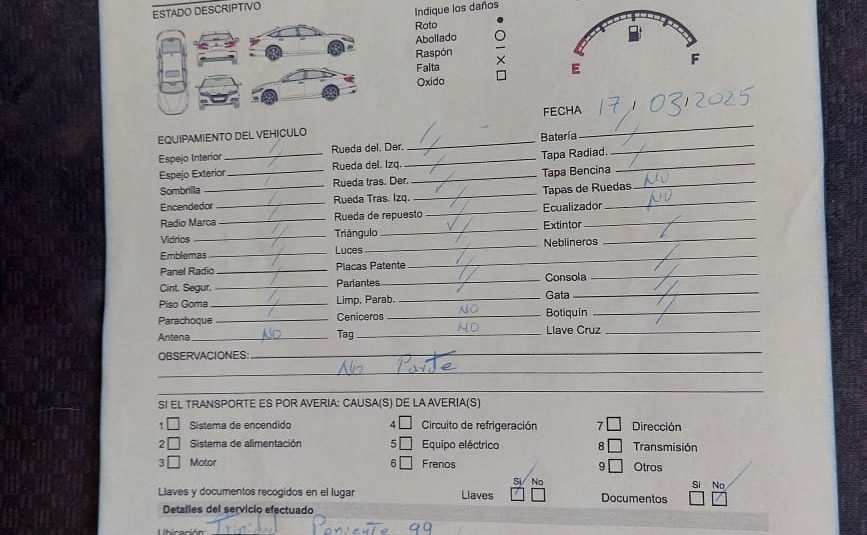 ESTADO DESCRIPTIVO
Indique los daños
Roto
Abollado
Raspón
Falta
Oxido
E F
FECHA 17/03/2025
EQUIPAMIENTO DEL VEHICULO
Espejo Interior
Espejo Exterior
Sombrilla
Encendedor
Radio Marca
Vidrios
Emblemas
Panel Radio
Cint. Segur.
Piso Goma
Parachoque
Antena NO
Rueda del. Der.
Rueda del. Izq.
Rueda tras. Der.
Rueda Tras. Izq.
Rueda de repuesto
Triángulo
Luces
Placas Patente
Parlantes
Limp. Parab.
Ceniceros NO
Tag NO
Batería
Tapa Radiad.
Tapa Bencina
Tapas de Ruedas NO
Ecualizador NO
Extintor
Neblineros
Consola
Gata
Botiquín
Llave Cruz
OBSERVACIONES:
No Parte
SI EL TRANSPORTE ES POR AVERIA: CAUSA(S) DE LA AVERIA(S)
1 Sistema de encendido
2 Sistema de alimentación
3 Motor
4 Circuito de refrigeración
5 Equipo eléctrico
6 Frenos
7 Dirección
8 Transmisión
9 Otros
Llaves y documentos recogidos en el lugar Llaves Si No Documentos Si No
Detalles del servicio efectuado
Ubicación: Trinidad Poniente 99